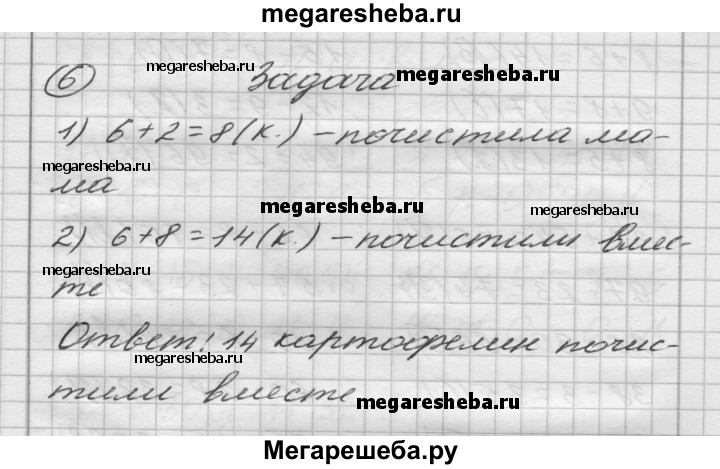 megaresheba.ru
6 Задача
megaresheba.ru megaresheba.ru
1) 6+2=8(к.) – почистила ма-
megaresheba.ru
ма
megaresheba.ru megaresheba.ru
2) 6+8=14(к.) – почистили вмес-
megaresheba.ru
те
Ответ: 14 картофелин почис-
megaresheba.ru
тили вместе
megaresheba.ru
Мегарешеба.ру